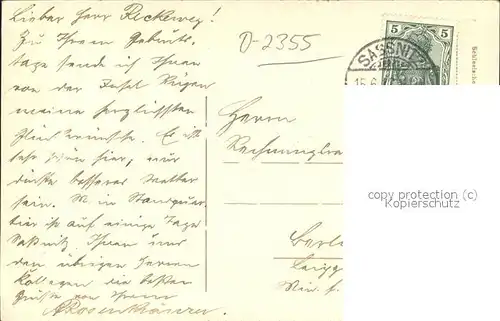 Lieber Herr Reckeweg!
Zu Ihrem Geburts-
tage sende ich Ihnen
von der Insel Rügen
meine herzlichsten
Glückwünsche. Es ist
sehr schön hier, nur
dürfte besseres Wetter
sein. M in Standquar-
tier ist auf einige Tage
Saßnitz. Ihnen und
den übrigen Herren
Kollegen die besten
Grüße von Ihrem
D-2355
5 5
SASSNITZ
15.6
Herrn
Rechnungs
Berl
Leipz
copy protection (c)
Kopierschutz